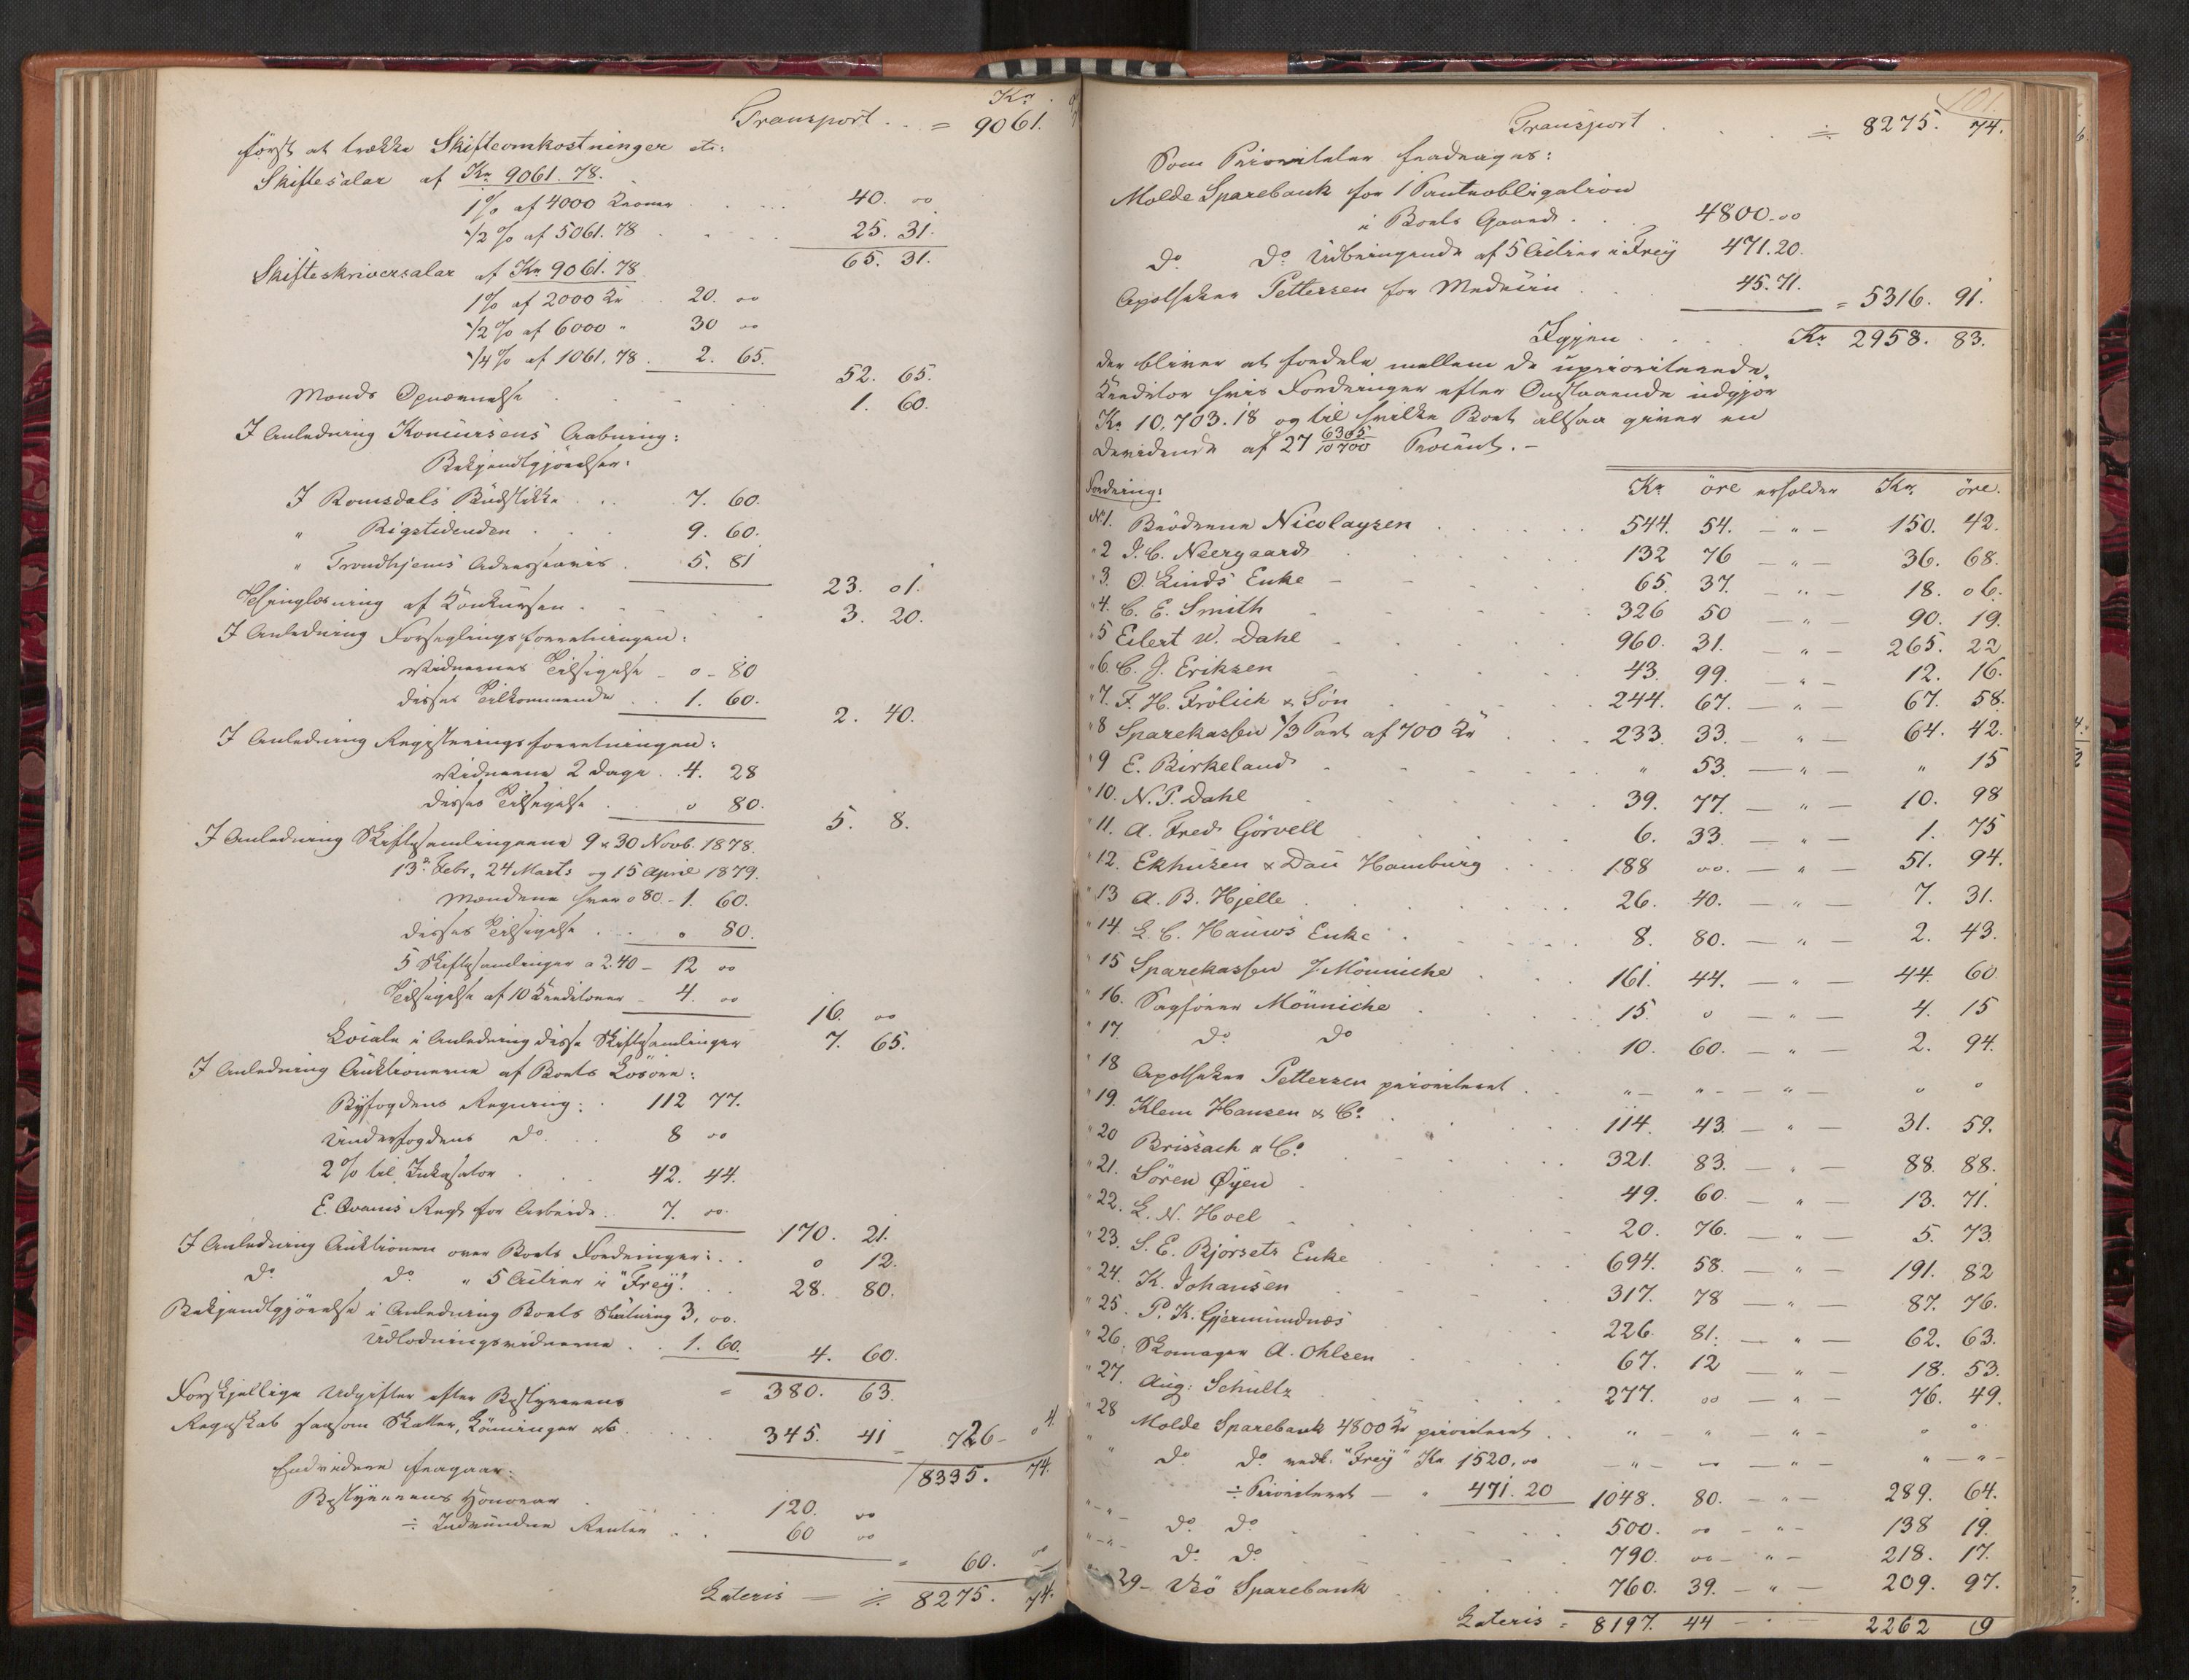 Kr.
Transport . . = 9061.
først at trække Skifteomkostninger etc:
Skiftesalær af Kr 9061. 78.
1% af 4000 Kroner . . . . 40. oo
1/2 % af 5061. 78 . . . . 25. 31.
65. 31.
Skifteskriversalær af Kr. 9061. 78
1% af 2000 Kr . . 20. oo
1/2 % af 6000 " 30 oo
1/4 % af 1061. 78 . 2. 65.
52. 65.
Mænds Opnævnelse . . . . 1. 60.
I Anledning Koncursens Aabning:
Bekjendtgjørelser:
I Romsdals Budstikke . . . 7. 60.
" Rigstidenden . . . 9. 60.
" Trondhjems Adresseavis . 5. 81
23. 01.
Thinglæsning af Konkursen . . . . 3. 20.
I Anledning Forseglingsforretningen:
Vidnernes Tilsigelse - o - 80
disses Tilkommende . . 1. 60.
2. 40.
I Anledning Registreringsforretningen:
Vidnerne 2 Dage . 4. 28
disses Tilsigelse . . o 80.
5. 8.
I Anledning Skiftesamlingerne 9 & 30 Novb. 1878.
13de Febr, 24 Marts og 15 April 1879.
Mændene hver o 80. - 1. 60.
disses Tilsigelse . . o 80.
5 Skiftesamlinger a 2.40 - 12 oo
Tilsigelse af 10 Kreditorer - 4. oo
16. oo
Locale i Anledning disse Skiftesamlinger 7. 65.
I Anledning Auktionerne af Boets Løsøre:
Byfogdens Regning: . 112 77.
Underfogdens do. . . 8 oo
2 % til Inkasator . . . 42. 44.
E. Qvams Regn for Arbeide . 7. oo.
170. 21.
I Anledning Auktionen over Boets Fordringer: . . o 12.
do. do. " 5 Actier i "Frey". . . 28. 80.
Bekjendtgjørelse i Anledning Boets Slutning 3, oo.
Udlodningsvidnerne . . 1. 60. 4. 60.
= 380. 63.
Forskjellige Udgifter efter Bestyrerens
Regnskab saasom Skatter, Lønninger etc . . . . 345. 41 = 726 - o4.
8335. 74.
Endvidere fragaar:
Bestyrerens Honorar . . . 120. oo
÷ Indvundne Renter . . 60 oo
= 60. oo
Lateris — ÷ 8275. 74.
101.
Transport . . . ÷ 8275. 74.
Som Prioriteter fradrages:
Molde Sparebank for 1 Panteobligation
i Boets Gaard . . 4800. oo
do. do. Udbringende af 5 Actier i Frey 471. 20.
Apotheker Pettersen for Medicin . . 45. 71.
= 5316. 91.
Igjen . . . . Kr 2958. 83.
der bliver at fordele mellem de uprioriterede
Kreditor hvis Fordringer efter Omstaaende udgjør
Kr 10,703. 18 og til hvilke Boet altsaa giver en
Devidende af 27 6305/10700 Procent. -
Fordring: Kr öre erholder Kr. öre.
No 1. Brödrene Nicolaysen . . . . 544. 54. - " - 150. 42.
" 2 I. C. Neergaard . . . . 132 76 - " - 36. 68.
" 3. O. Linds Enke - - - - 65. 37. - " - 18. 06.
" 4. C. E. Smith . . . . 326 50 - " - 90. 19.
" 5 Eilert W. Dahl . . . . 960. 31. - " - 265. 22
" 6. C. J. Eriksen . . . . 43. 99. - " - 12. 16.
" 7. F. H. Frölich & Søn . . . . 244. 67. - " - 67. 58.
" 8 Sparekassen 1/3 Part af 700 Kr . . . 233. 33. - " - 64. 42.
" 9 E. Birkeland . . . . " 53. - " - " 15
" 10. N. P. Dahl . . . . 39. 77. - " - 10. 98
" 11. A. Fred. Görvell . . . . 6. 33. - " - 1. 75
" 12. Ekhusen & Dau Hamburg . . . 188 oo. - " - 51. 94.
" 13 A. B. Hjelle . . . . 26. 40. - " - 7. 31.
" 14. L. C. Hauws Enke . . . . 8. 80. - " - 2. 43.
" 15 Sparekassen / Mönniche . . . 161. 44. - " - 44. 60.
" 16. Sagfører Mönniche . . . . 15. o - " - 4. 15
" 17. do do . . . . 10. 60. - " - 2. 94.
" 18 Apotheker Pettersen prioriteret . . " - " - - " - o o
" 19. Klem Hansen & Co. . . . . 114. 43. - " - 31. 59.
" 20 Brissach & Co. . . . . 321. 83. - " - 88. 88.
" 21. Sören Øyen . . . . 49. 60. - " - 13. 71.
" 22. L. N. Hoel . . . . 20. 76. - " - 5. 73.
" 23. S. E. Bjørsets Enke . . . . 694. 58. - " - 191. 82
" 24. K. Johansen . . . . 317. 78 - " - 87. 76.
" 25. P. K. Gjermundnæs . . . . 226. 81. - " - 62. 63.
" 26. Skomager A. Ohlsen . . . . 67. 12 - " - 18. 53.
" 27. Aug: Schultz . . . . 277. oo - " - 76. 49.
" 28 Molde Sparebank 4800 Kr prioriteret . . " - " - " - o o
" " do do. vedk. "Frey" Kr 1520, oo - " - - " - " - " -
÷ Prioriteret - " 471. 20 1048. 80. - " - 289. 64.
" - " - do. do . . . . 500. oo - " - 138 19.
" - " - do. do. . . . . 790. oo - " - 218. 17.
" 29 - Veö Sparebank . . . . 760. 39. - " - 209. 97.
Lateris = 8197. 44 - " - 2262 19